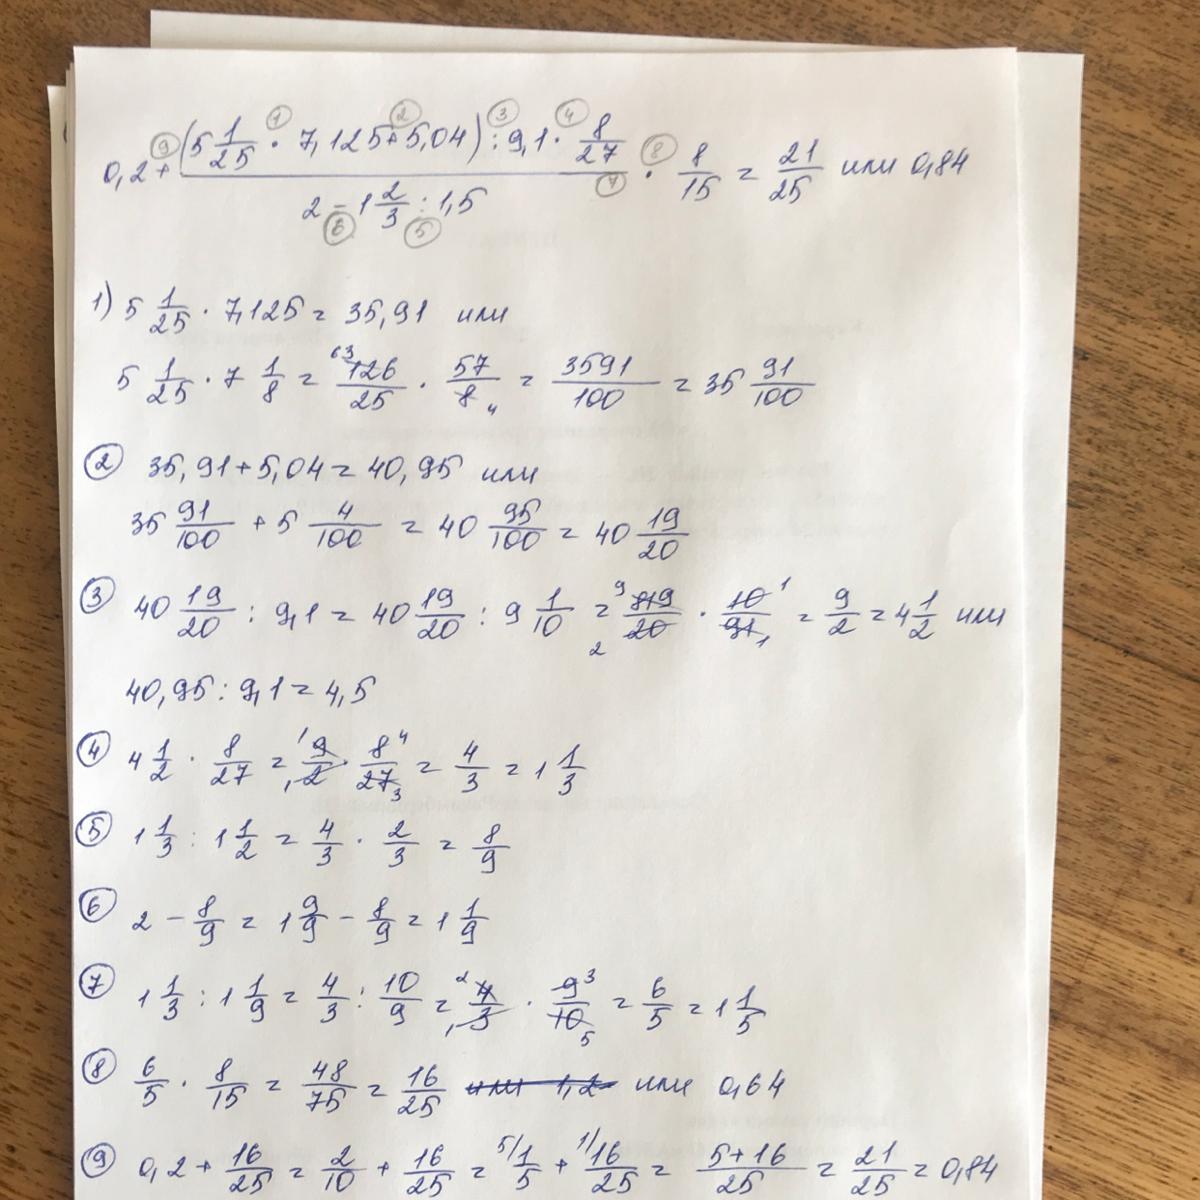 0,2 + ((5 1/25 · 7,125 + 5,04) : 9,1 · 8/27) / (2 - 1 2/3 : 1,5) · 8/15 = 21/25 или 0,84
1) 5 1/25 · 7,125 = 35,91 или
5 1/25 · 7 1/8 = 126/25 · 57/8 = 3591/100 = 35 91/100
② 35,91 + 5,04 = 40,95 или
35 91/100 + 5 4/100 = 40 95/100 = 40 19/20
③ 40 19/20 : 9,1 = 40 19/20 : 9 1/10 = 819/20 · 10/91 = 9/2 = 4 1/2 или
40,95 : 9,1 = 4,5
④ 4 1/2 · 8/27 = 9/2 · 8/27 = 4/3 = 1 1/3
⑤ 1 1/3 : 1 1/2 = 4/3 · 2/3 = 8/9
⑥ 2 - 8/9 = 1 9/9 - 8/9 = 1 1/9
⑦ 1 1/3 : 1 1/9 = 4/3 : 10/9 = 4/3 · 9/10 = 6/5 = 1 1/5
⑧ 6/5 · 8/15 = 48/75 = 16/25 или 1,2 или 0,64
⑨ 0,2 + 16/25 = 2/10 + 16/25 = 5/ 1/5 + 1/ 16/25 = 5+16/25 = 21/25 = 0,84